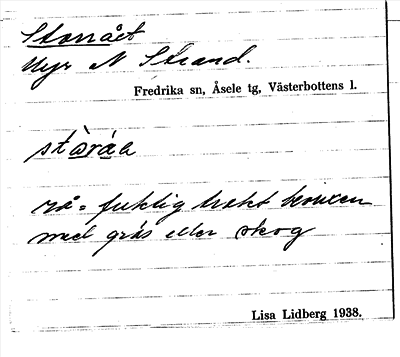 Storrået
Myr N Strand.
Fredrika sn, Åsele tg, Västerbottens l.
rå = fuktig trakt
med gräs eller skog
Lisa Lidberg 1938.